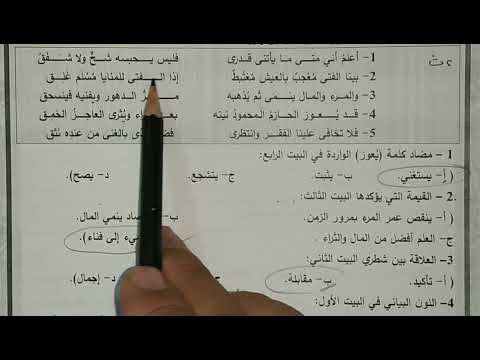 1- أعلمُ أني متى ما يأتني قدرى فليس يحبسه شحٌّ ولا شفقُ
2- بينا الفتى مُعْجبٌ بالعيش مُغتبطٌ إذا الفتى للمنايا مُسْلَم غلق
3- والمرء والمال ينمى ثم يُذهبه الدهور ويفنيه فينسحق
4- قد يُعوز الحازمُ المحمودُ نيته ويُثرى العاجزُ الحَمِق
5- فلا تخافى علينا الفقر وانتظرى بالغنى من عنده نثق
1 - مضاد كلمة (يُعوز) الواردة في البيت الرابع:
(أ- يستغني. ب- يثبت. ج- يتشجع. د- يصح).
2- القيمة التي يؤكدها البيت الثالث:
(أ- ينقص عمر المرء بمرور الزمن. ينمي المال.
ج- العلم أفضل من المال والثراء. إلى فناء).
3- العلاقة بين شطري البيت الثاني:
(أ- تأكيد. ب- مقابلة. د- إجمال).
4- اللون البياني في البيت الأول: